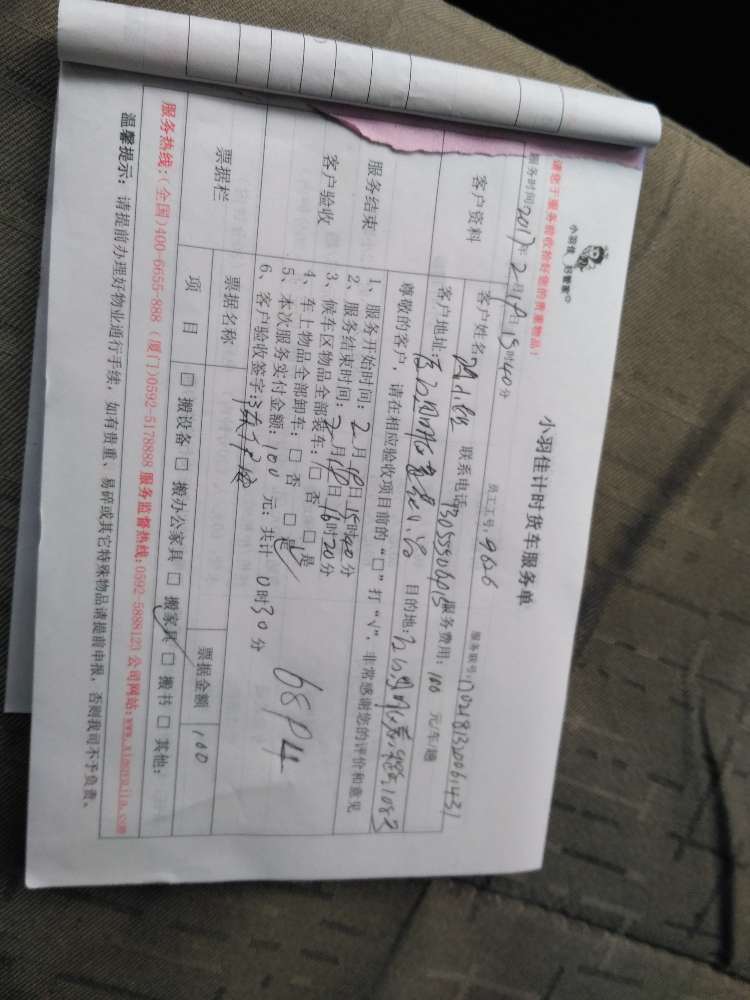 小羽佳 好管家
小羽佳计时货车服务单
请您于服务前收拾好您的贵重物品!
员工工号: 9626
服务时间: 2017年2月19日15时40分
客户资料
客户姓名 联系电话 服务费用: 100 元/车/趟
客户地址: 目的地:
尊敬的客户, 请在相应验收项目前的“□”打“√”, 非常感谢您的评价和意见
服务结束
客户验收
1、服务开始时间: 2月19日15时40分
2、服务结束时间: 2月19日16时20分
3、候车区物品全部装车: □ 否 □ 是
4、车上物品全部卸车: □ 否 □ 是
5、本次服务实付金额: 100 元; 共计 0时30分
6、客户验收签字:
68P4
票据栏
票据名称 票据金额 100
项 目 □ 搬设备 □ 搬办公家具 □ 搬家具 □ 搬书 □ 其他:
服务热线:(全国)400-6655-888 (厦门)0592-5178888 服务监督热线:0592-5888123 公司网站:www.xiaoyujia.com
温馨提示: 请提前办理好物业通行手续, 如有贵重、易碎或其它特殊物品请提前申报, 否则我司不予负责。